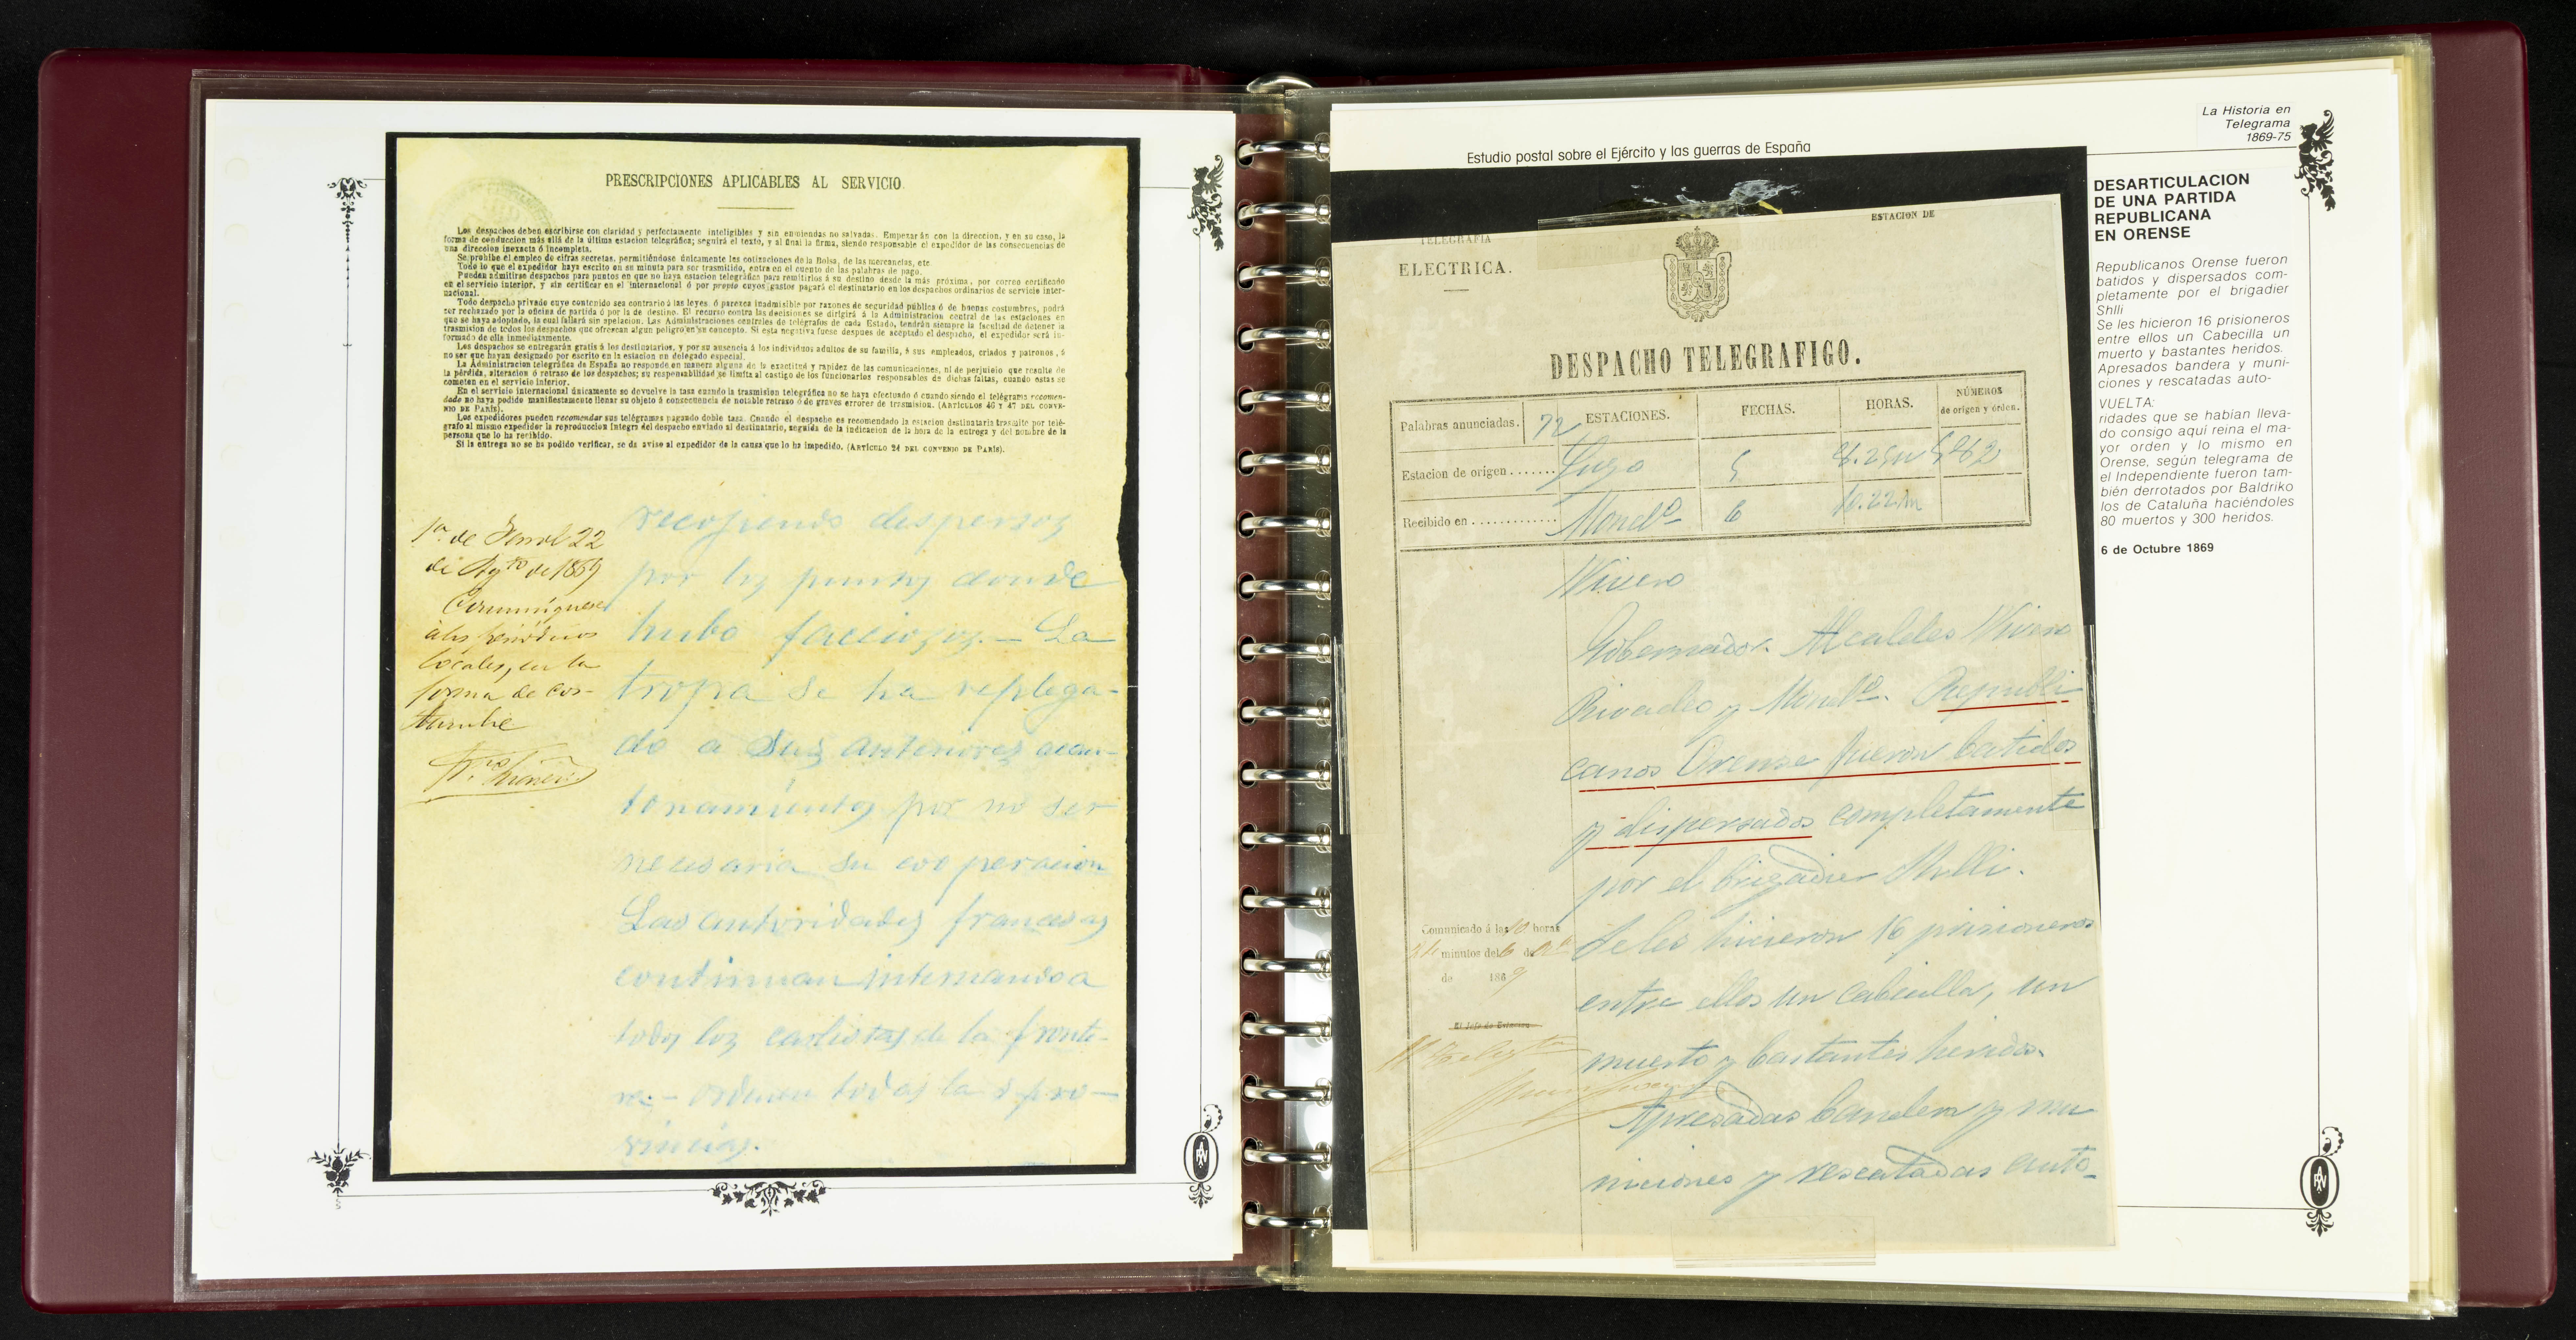 PRESCRIPCIONES APLICABLES AL SERVICIO.
Los despachos deben escribirse con claridad y perfectamente inteligibles y sin enmiendas no salvadas. Empezarán con la direccion, y en su caso, la
forma de conduccion más allá de la última estacion telegráfica; seguirá el texto, y al final la firma, siendo responsable el expedidor de las consecuencias de
una direccion inexacta ó incompleta.
Se prohibe el empleo de cifras secretas, permitiéndose únicamente las cotizaciones de la Bolsa, de las mercancías, etc.
Todo lo que el expedidor haya escrito en su minuta para ser trasmitido, entra en el cuento de las palabras de pago.
Pueden admitirse despachos para puntos en que no haya estacion telegráfica para remitirlos á su destino desde la más próxima, por correo certificado
en el servicio interior, y sin certificar en el internacional ó por propio cuyos gastos pagará el destinatario en los despachos ordinarios de servicio inter-
nacional.
Todo despacho privado cuyo contenido sea contrario á las leyes, ó parezca inadmisible por razones de seguridad pública ó de buenas costumbres, podrá
ser rechazado por la oficina de partida ó por la de destino. El recurso contra las decisiones se dirigirá á la Administracion central de las estaciones en
que se haya adoptado, la cual fallará sin apelacion. Las Administraciones centrales de telégrafos de cada Estado, tendrán siempre la facultad de detener la
trasmision de todos los despachos que ofrezcan algun peligro en su concepto. Si esta negativa fuese despues de aceptado el despacho, el expedidor será in-
formado de ella inmediatamente.
Los despachos se entregarán gratis á los destinatarios, y por su ausencia á los individuos adultos de su familia, á sus empleados, criados y patronos, á
no ser que hayan designado por escrito en la estacion un delegado especial.
La Administracion telegráfica de España no responde en manera alguna de la exactitud y rapidez de las comunicaciones, ni de perjuicio que resulte de
la pérdida, alteracion ó retraso de los despachos; su responsabilidad se limita al castigo de los funcionarios responsables de dichas faltas, cuando estas se
cometen en el servicio interior.
En el servicio internacional únicamente se devuelve la tasa cuando la trasmision telegráfica no se haya efectuado ó cuando siendo el telégrama recomen-
dado no haya podido manifiestamente llenar su objeto á consecuencia de notable retraso ó de graves errores de trasmision. (ARTÍCULOS 46 Y 47 DEL CONVE-
NIO DE PARÍS).
Los expedidores pueden recomendar sus telégramas pagando doble tasa. Cuando el despacho es recomendado la estacion destinataria trasmite por telé-
grafo al mismo expedidor la reproduccion íntegra del despacho enviado al destinatario, seguida de la indicacion de la hora de la entrega y del nombre de la
persona que lo ha recibido.
Si la entrega no se ha podido verificar, se da aviso al expedidor de la causa que lo ha impedido. (ARTÍCULO 24 DEL CONVENIO DE PARÍS).
1ª de Ferrol 22
de Agto de 1869
Comuníquese
á los periódicos
locales, en la
forma de cos-
tumbre
recojiendo dispersos
por los puntos donde
hubo facciosos. — La
tropa se ha replega-
do a sus anteriores acan-
tonamientos por no ser
necesaria su cooperacion
Las autoridades francesas
continuan internando a
todos los carlistas de la fronte-
ra. — Orden en todas las pro-
vincias.
La Historia en
Telegrama
1869-75
Estudio postal sobre el Ejército y las guerras de España
TELEGRAFIA
ELECTRICA.
ESTACION DE
DESPACHO TELEGRAFICO.
Palabras anunciadas. 72 ESTACIONES. FECHAS. HORAS. NÚMEROS
de origen y órden.
Estacion de origen ....... Lugo 5 8.25
Recibido en ............. Mondº 6 10.22m
Vivero
Gobernador. Alcaldes Vivero
Rivadeo y Mondº. Republi
canos Orense fueron batidos
y dispersados completamente
por el brigadier Shlli.
Se les hicieron 16 prisioneros
entre ellos un cabecilla, un
muerto y bastantes heridos.
Apresadas bandera y mu
niciones y rescatadas auto-
Comunicado á las 10 horas
minutos del 6 de
de 1869
El Jefe de Estacion
DESARTICULACION
DE UNA PARTIDA
REPUBLICANA
EN ORENSE
Republicanos Orense fueron
batidos y dispersados com-
pletamente por el brigadier
Shlli
Se les hicieron 16 prisioneros
entre ellos un Cabecilla un
muerto y bastantes heridos.
Apresados bandera y muni-
ciones y rescatadas auto-
VUELTA:
ridades que se habian lleva-
do consigo aquí reina el ma-
yor orden y lo mismo en
Orense, según telegrama de
el Independiente fueron tam-
bién derrotados por Baldriko
los de Cataluña haciéndoles
80 muertos y 300 heridos.
6 de Octubre 1869